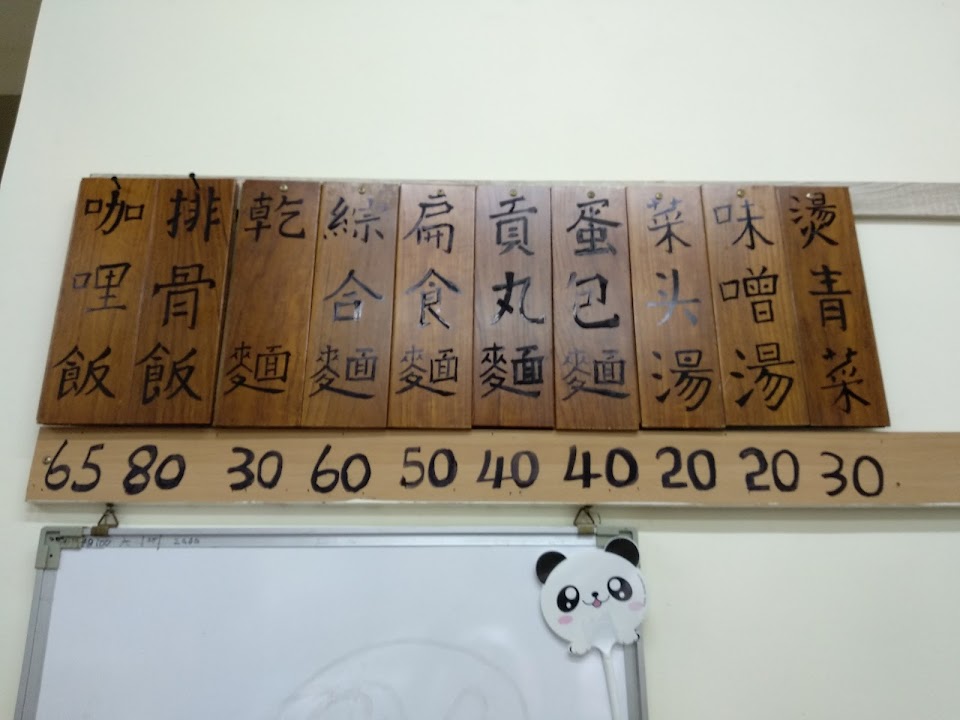 咖哩飯
排骨飯
乾麵
綜合麵
扁食麵
貢丸麵
蛋包麵
菜头湯
味噌湯
燙青菜
65 80 30 60 50 40 40 20 20 30